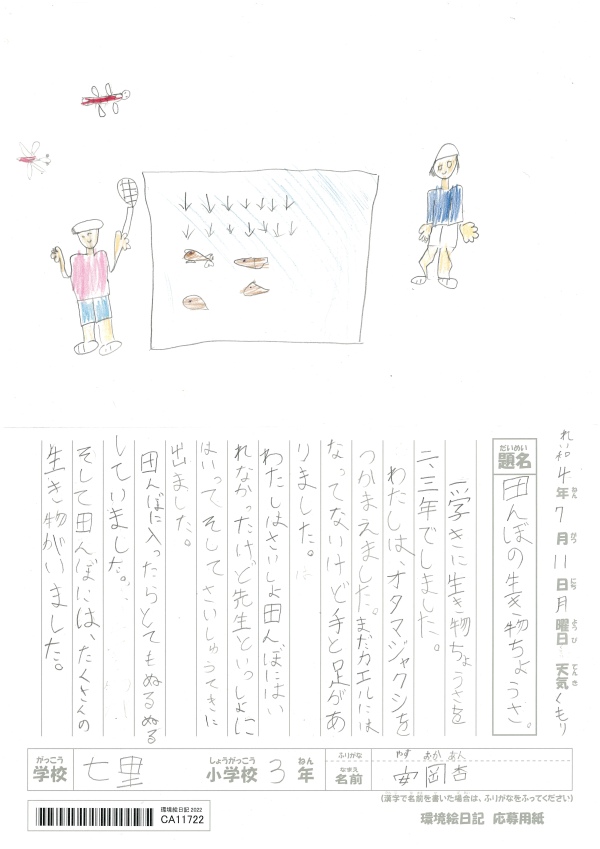 れい和4年7月11日月曜日 天気くもり
ねん がつ にち ようび てんき
だいめい
題名 田んぼの生き物ちょうさ。
一学きに生き物ちょうさを
二、三年でしました。
わたしは、オタマジャクシを
つかまえました。まだカエルには
なってないけど手と足があ
りました。
わたしはさいしょ田んぼにはい
れなかったけど先生といっしょに
はいってそしてさいしゅうてきに
出ました。
田んぼに入ったらとてもぬるぬる
していました。
そして田んぼには、たくさんの
生き物がいました。
がっこう しょうがっこう ねん
学校 七里 小学校 3年
ふりがな やす おか あん
なまえ
名前 安岡杏
(漢字で名前を書いた場合は、ふりがなをふってください)
環境絵日記 2022
CA11722
環境絵日記 応募用紙